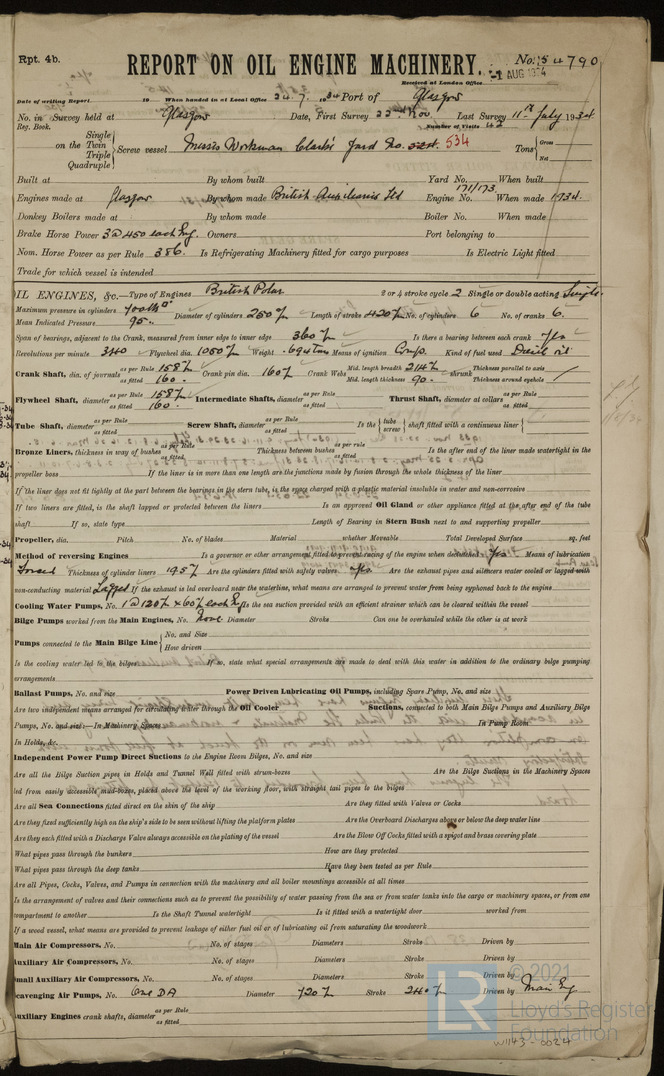 Rpt. 4b.
REPORT ON OIL ENGINE MACHINERY.
No. 54790
Received at London Office -1 AUG 1934
Date of writing Report 19 When handed in at Local Office 24.7.1934 Port of Glasgow
No. in Survey held at Glasgow Date, First Survey 22nd Nov Last Survey 11th July 1934
Reg. Book. Number of Visits 42
Single
on the Twin
Triple
Quadruple
Screw vessel Messrs Workman Clarke Yard No. 534
Tons Gross
Net
Built at By whom built Yard No. When built
Engines made at Glasgow By whom made British Auxiliaries Ltd Engine No. 171/173 When made 1934.
Donkey Boilers made at By whom made Boiler No. When made
Brake Horse Power 3 @ 450 each Eng. Owners Port belonging to
Nom. Horse Power as per Rule 386. Is Refrigerating Machinery fitted for cargo purposes Is Electric Light fitted
Trade for which vessel is intended
OIL ENGINES, &c.—Type of Engines British Polar 2 or 4 stroke cycle 2 Single or double acting Single
Maximum pressure in cylinders 700 lbs Diameter of cylinders 250 m/m Length of stroke 420 m/m No. of cylinders 6 No. of cranks 6.
Mean Indicated Pressure 90.
Span of bearings, adjacent to the Crank, measured from inner edge to inner edge 360 m/m Is there a bearing between each crank Yes
Revolutions per minute 340 Flywheel dia. 1050 m/m Weight .694 Tons Means of ignition Comp. Kind of fuel used Diesel oil
Crank Shaft, dia. of journals as per Rule 158 m/m as fitted 160. Crank pin dia. 160 m/m Crank Webs Mid. length breadth 214 m/m Mid. length thickness 90. shrunk Thickness parallel to axis Thickness around eyehole
Flywheel Shaft, diameter as per Rule 158 m/m as fitted 160. Intermediate Shafts, diameter as per Rule as fitted Thrust Shaft, diameter at collars as per Rule as fitted
Tube Shaft, diameter as per Rule as fitted Screw Shaft, diameter as per Rule as fitted Is the tube screw shaft fitted with a continuous liner
Bronze Liners, thickness in way of bushes as per Rule as fitted Thickness between bushes as per rule as fitted Is the after end of the liner made watertight in the
propeller boss If the liner is in more than one length are the junctions made by fusion through the whole thickness of the liner
If the liner does not fit tightly at the part between the bearings in the stern tube, is the space charged with a plastic material insoluble in water and non-corrosive
If two liners are fitted, is the shaft lapped or protected between the liners Is an approved Oil Gland or other appliance fitted at the after end of the tube
shaft If so, state type Length of Bearing in Stern Bush next to and supporting propeller
Propeller, dia. Pitch No. of blades Material whether Moveable Total Developed Surface sq. feet
Method of reversing Engines Is a governor or other arrangement fitted to prevent racing of the engine when declutched Yes Means of lubrication
Forced Thickness of cylinder liners 19.5 m/m Are the cylinders fitted with safety valves Yes. Are the exhaust pipes and silencers water cooled or lagged with
non-conducting material Lagged If the exhaust is led overboard near the waterline, what means are arranged to prevent water from being syphoned back to the engine
Cooling Water Pumps, No. 1 @ 120 m/m x 60 m/m each Eng Is the sea suction provided with an efficient strainer which can be cleared within the vessel
Bilge Pumps worked from the Main Engines, No. None Diameter Stroke Can one be overhauled while the other is at work
Pumps connected to the Main Bilge Line No. and Size
How driven
Is the cooling water led to the bilges If so, state what special arrangements are made to deal with this water in addition to the ordinary bilge pumping
arrangements
Ballast Pumps, No. and size Power Driven Lubricating Oil Pumps, including Spare Pump, No. and size
Are two independent means arranged for circulating water through the Oil Cooler Suctions, connected to both Main Bilge Pumps and Auxiliary Bilge
Pumps, No. and size:—In Machinery Spaces In Pump Room
In Holds, &c.
Independent Power Pump Direct Suctions to the Engine Room Bilges, No. and size
Are all the Bilge Suction pipes in Holds and Tunnel Well fitted with strum-boxes Are the Bilge Suctions in the Machinery Spaces
led from easily accessible mud-boxes, placed above the level of the working floor, with straight tail pipes to the bilges
Are all Sea Connections fitted direct on the skin of the ship Are they fitted with Valves or Cocks
Are they fixed sufficiently high on the ship's side to be seen without lifting the platform plates Are the Overboard Discharges above or below the deep water line
Are they each fitted with a Discharge Valve always accessible on the plating of the vessel Are the Blow Off Cocks fitted with a spigot and brass covering plate
What pipes pass through the bunkers How are they protected
What pipes pass through the deep tanks Have they been tested as per Rule
Are all Pipes, Cocks, Valves, and Pumps in connection with the machinery and all boiler mountings accessible at all times
Is the arrangement of valves and their connections such as to prevent the possibility of water passing from the sea or from water tanks into the cargo or machinery spaces, or from one
compartment to another Is the Shaft Tunnel watertight Is it fitted with a watertight door worked from
If a wood vessel, what means are provided to prevent leakage of either fuel oil or of lubricating oil from saturating the woodwork
Main Air Compressors, No. No. of stages Diameters Stroke Driven by
Auxiliary Air Compressors, No. No. of stages Diameters Stroke Driven by
Small Auxiliary Air Compressors, No. No. of stages Diameters Stroke Driven by
Scavenging Air Pumps, No. One DA Diameter 720 m/m Stroke 240 m/m Driven by Main Eng
Auxiliary Engines crank shafts, diameter as per Rule
as fitted
LR © 2021
Lloyd's Register
Foundation
W1143-0024